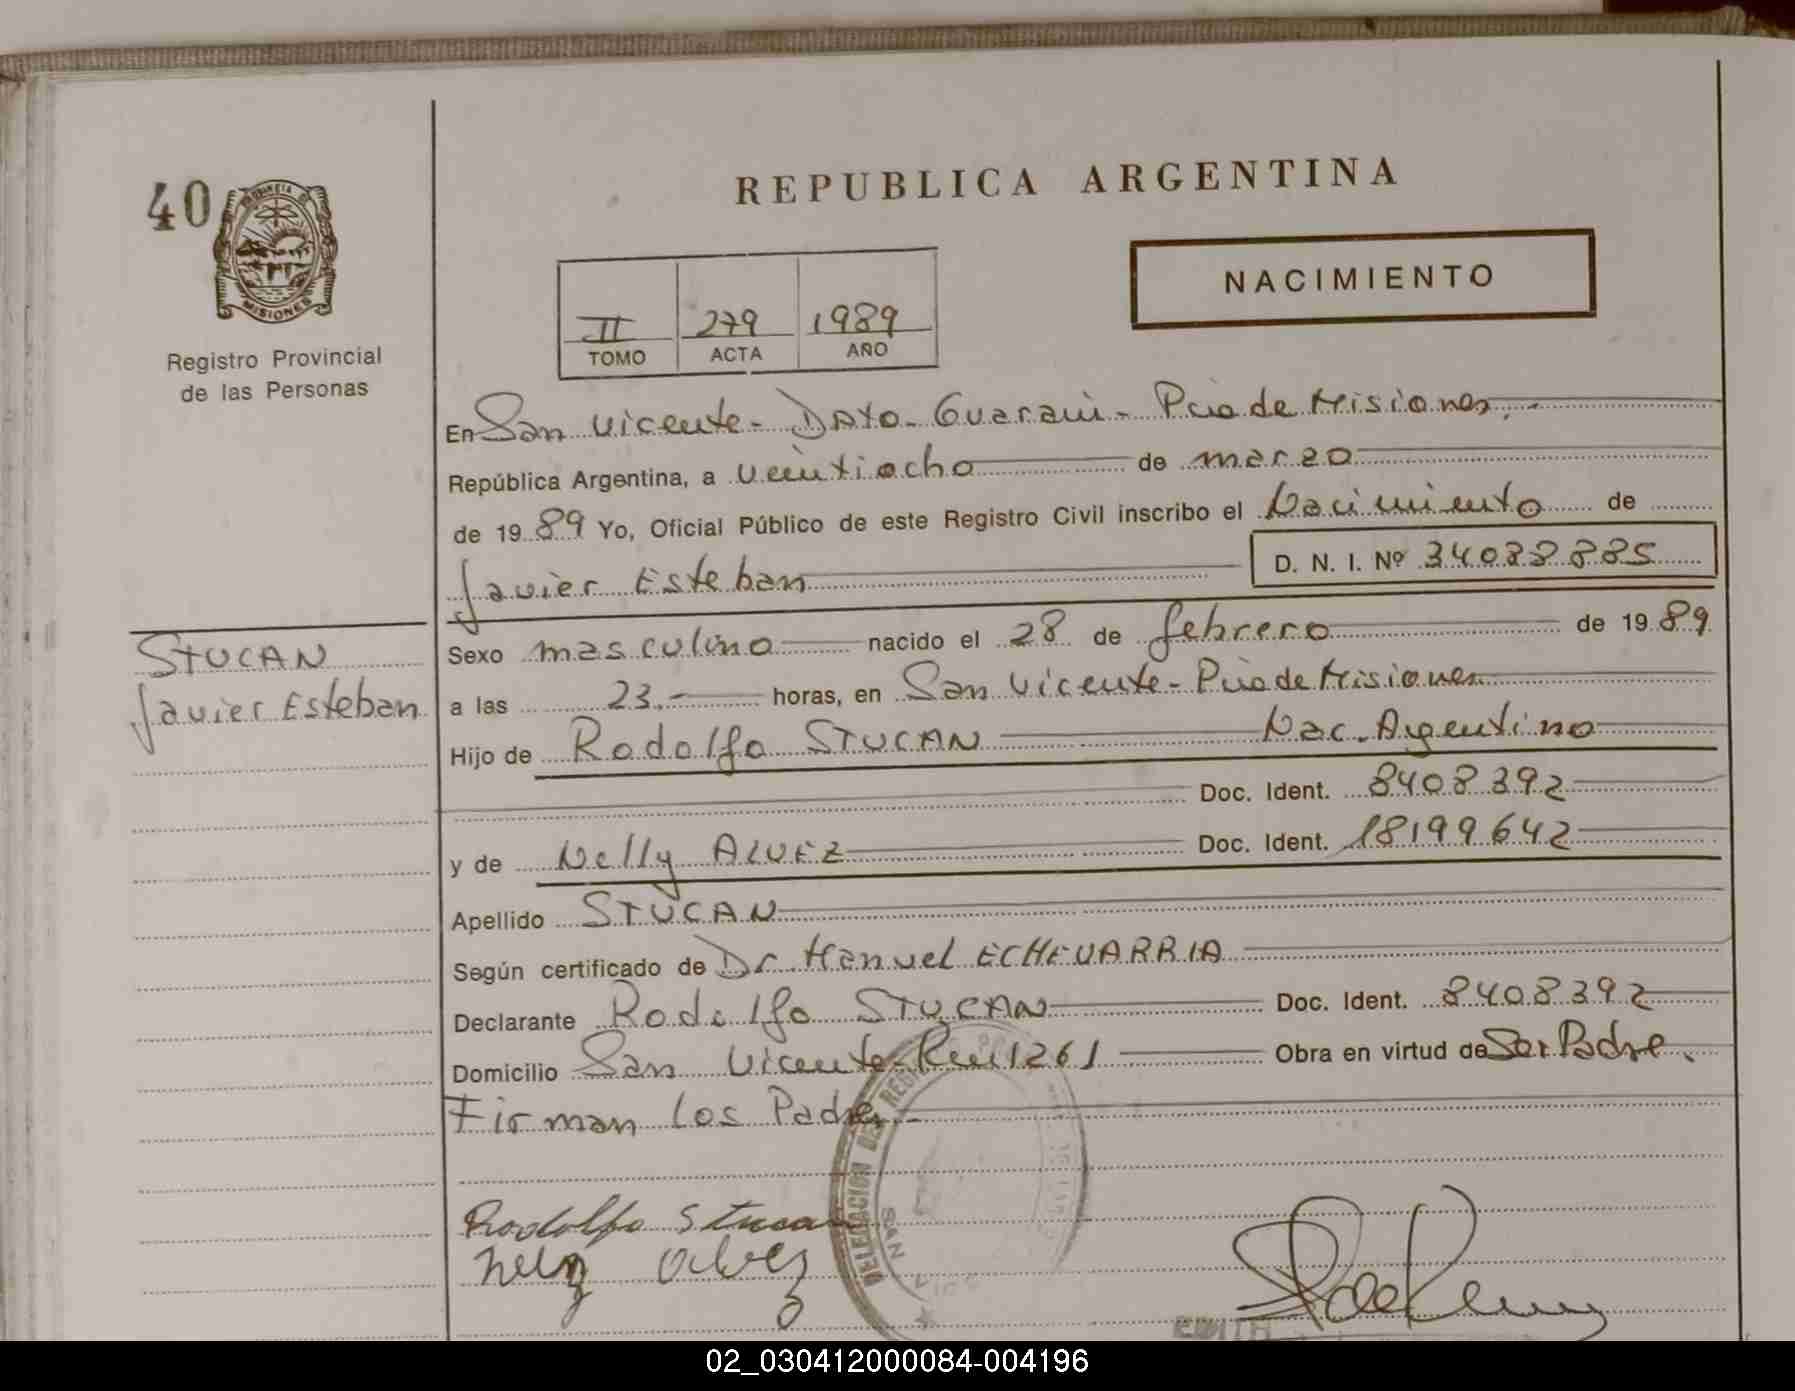 40
PROVINCIA
MISIONES
Registro Provincial
de las Personas
REPUBLICA ARGENTINA
NACIMIENTO
II 279 1989
TOMO ACTA AÑO
En San Vicente - Dpto. Guarani - Pcia de Misiones.-
República Argentina, a veintiocho de marzo
de 19 89 Yo, Oficial Público de este Registro Civil inscribo el Nacimiento de
Javier Esteban D. N. I. Nº 34088885
STUCAN
Javier Esteban
Sexo masculino nacido el 28 de febrero de 19 89
a las 23.- horas, en San Vicente - Pcia de Misiones
Hijo de Rodolfo STUCAN Nac. Argentino
Doc. Ident. 8408392
y de Nelly ALVEZ Doc. Ident. 18199642
Apellido STUCAN
Según certificado de Dr. Manuel ECHEVARRIA
Declarante Rodolfo STUCAN Doc. Ident. 8408392
Domicilio San Vicente - Km 1261 Obra en virtud de Ser Padre.
Firman los Padres.-
DELEGACION DEL REGISTRO
SAN VIC
Rodolfo Stucan
Nely alvez
EDITH
02_030412000084-004196